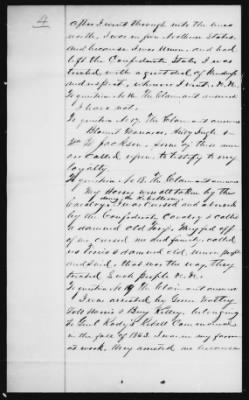 4
After I went through into the lines
north. I was in five Northern States,
and because I was Union, and had
left the Confederate States I was
treated with a great deal of kindness
and respect, wherever I went. &c.
To question No. 16 The Claimant answered
I have not.
To question No. 17. The Claimant answered
Blount Manaver,
Wm W Jackson. some by these men
are Called upon to testify to my
loyalty.
To question No. 18. The Claimant answered
My Horses were all taken by the
Cavalry. I was cursed and abused
by the Confederate Cavalry & called
a damned old Tory. They fed off
of me cursed me and family. called
us Tories & damned old Union people
and said that was the way they
treated Such people &c.
To question No. 19 The Claimant answered
I was arrested by Green
Bob Harris & Berry Kelley, belonging
to Genl Roddy's Rebel Command
in the fall of 1863. I was in my farm
at work. They arrested me because